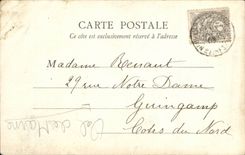 CARTE POSTALE
Ce côté est exclusivement réservé à l'adresse
Madame
29 rue Notre Dame
Guingamp
Cotes du Nord